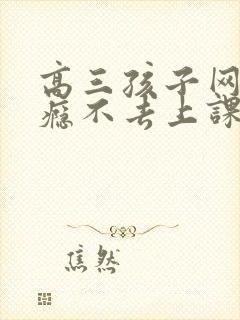 高三孩子网
瘾不去上課
焦然